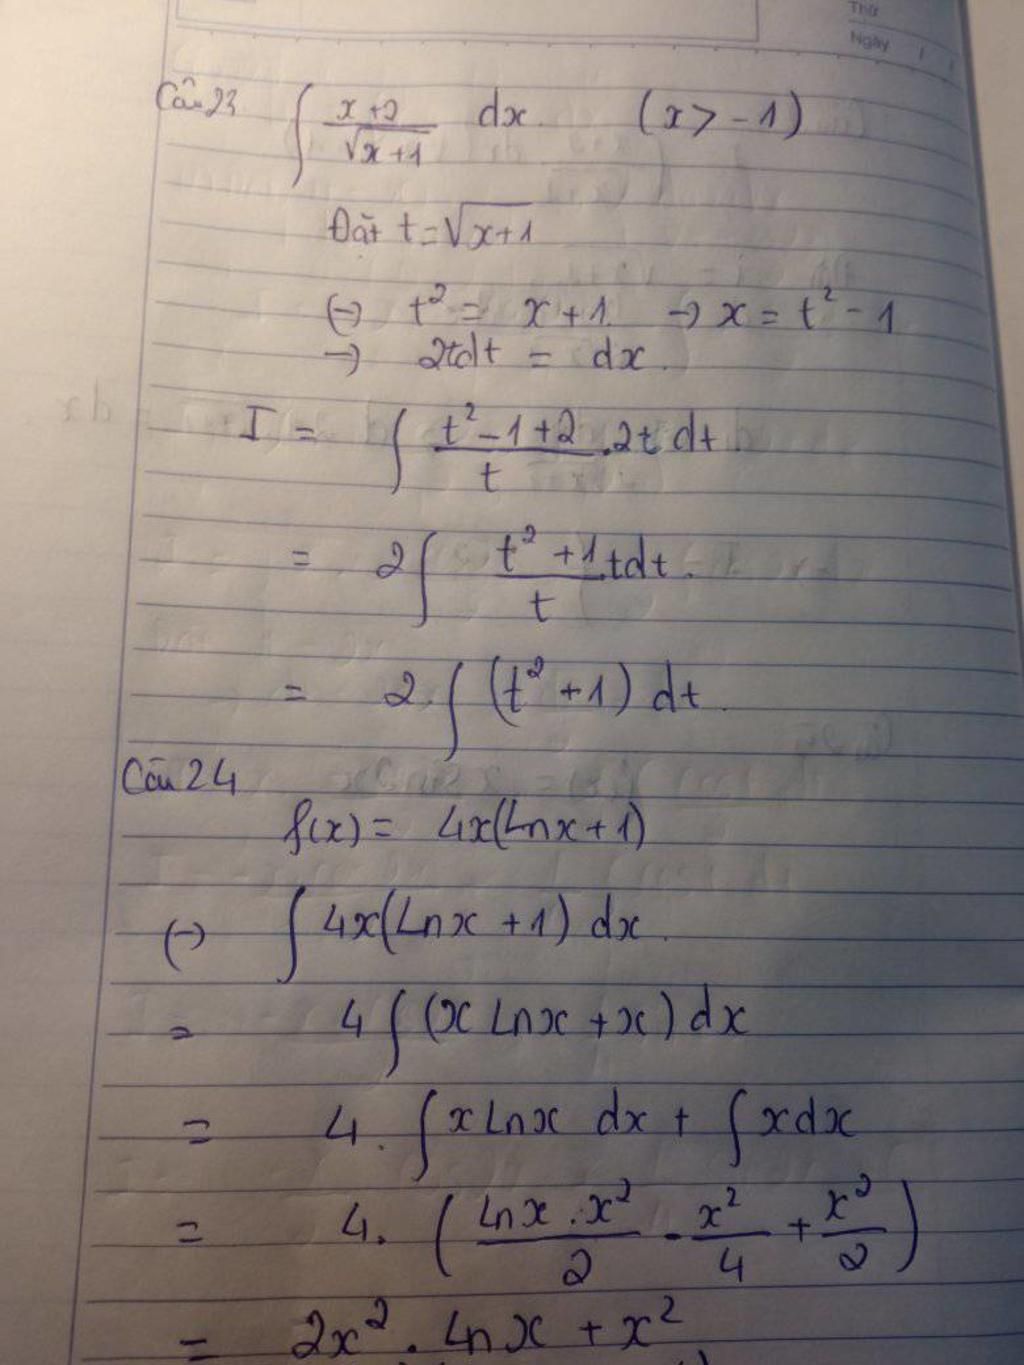 Thứ
Ngày / /
Câu 23 ∫ (x+2)/√(x+1) dx (x > -1)
Đặt t = √(x+1)
(→) t² = x+1 → x = t² - 1
→ 2tdt = dx
I = ∫ (t² - 1 + 2)/t . 2t dt
= 2∫ (t² + 1)/t . tdt.
= 2.∫ (t² + 1) dt
Câu 24
f(x) = 4x(Lnx + 1)
(→) ∫ 4x(Lnx + 1) dx
= 4∫ (x Lnx + x) dx
= 4. ∫ x Lnx dx + ∫ x dx
= 4. ( (Lnx . x²)/2 - x²/4 + x²/2 )
= 2x² . Lnx + x²